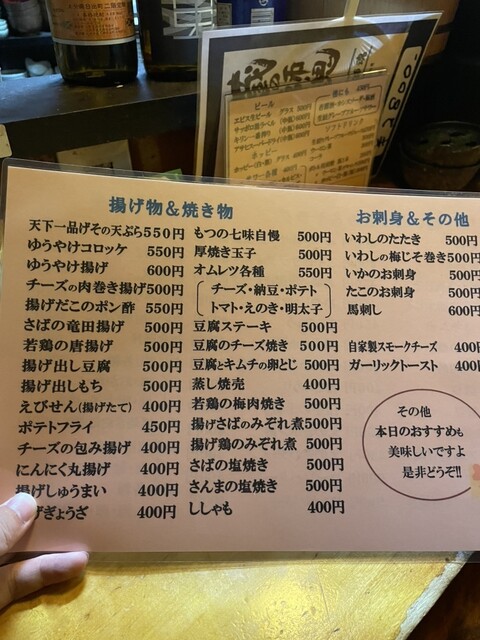 揚げ物&焼き物
天下一品げその天ぷら550円
ゆうやけコロッケ 550円
ゆうやけ揚げ 600円
チーズの肉巻き揚げ500円
揚げだこのポン酢 550円
さばの竜田揚げ 500円
若鶏の唐揚げ 500円
揚げ出し豆腐 500円
揚げ出しもち 500円
えびせん(揚げたて) 400円
ポテトフライ 450円
チーズの包み揚げ 400円
にんにく丸揚げ 400円
揚げしゅうまい 400円
げぎょうざ 400円
もつの七味自慢 500円
厚焼き玉子 500円
オムレツ各種 550円
チーズ・納豆・ポテト
トマト・えのき・明太子
豆腐ステーキ 500円
豆腐のチーズ焼き 500円
豆腐とキムチの卵とじ 500円
蒸し焼売 400円
若鶏の梅肉焼き 500円
揚げさばのみぞれ煮500円
揚げ鶏のみぞれ煮 500円
さばの塩焼き 500円
さんまの塩焼き 500円
ししゃも 400円
お刺身&その他
いわしのたたき 500円
いわしの梅じそ巻き500円
いかのお刺身 500円
たこのお刺身 500円
馬刺し 600円
自家製スモークチーズ 400円
ガーリックトースト 400
その他
本日のおすすめも
美味しいですよ
是非どうぞ!!
ビール
ソフトドリンク
ホッピー